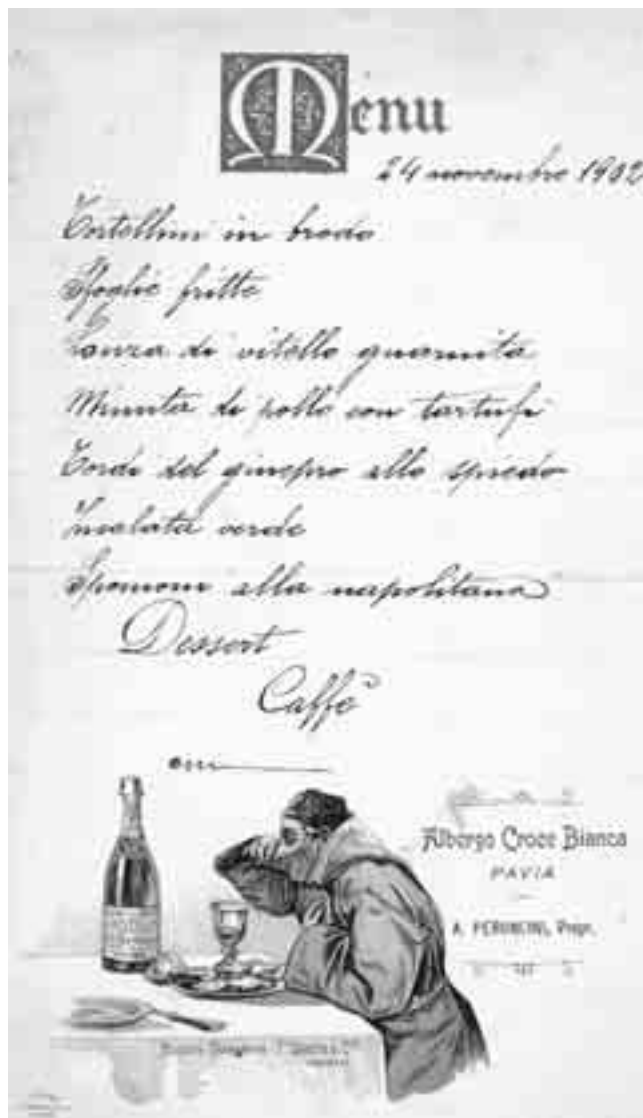 Menu
24 novembre 1902
Tortellini in brodo
Sfoglie fritte
Lonza di vitello guarnita
Minuta di pollo con tartufi
Tordi del ginepro allo spiedo
Insalata verde
Spomoni alla napolitana
Dessert
Caffè
Albergo Croce Bianca
PAVIA
Propr.